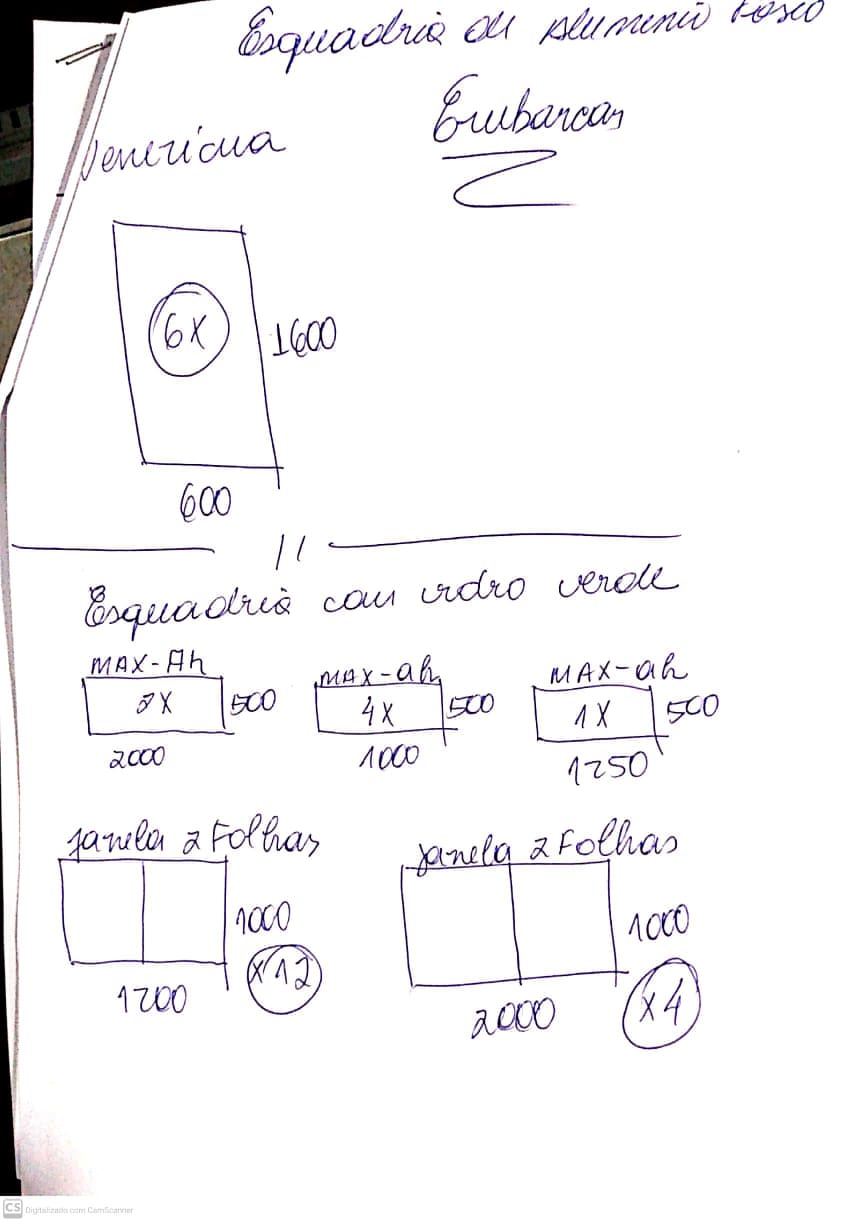 Esquadria de Aluminio Fosco
Embarcas
Veneziana
6X
1600
600
Esquadria com vidro verde
MAX-Ah
MAX-ah
MAX-ah
500
4X
500
1X
500
2000
1000
1250
Janela 2 Folhas
Janela 2 Folhas
1000
1000
x12
1200
2000
x4
CS Digitalizado com CamScanner